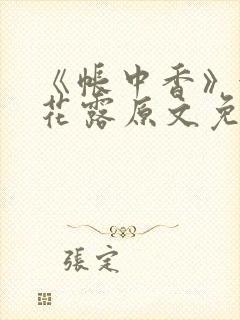 《帐中香》
花露原文免
張定